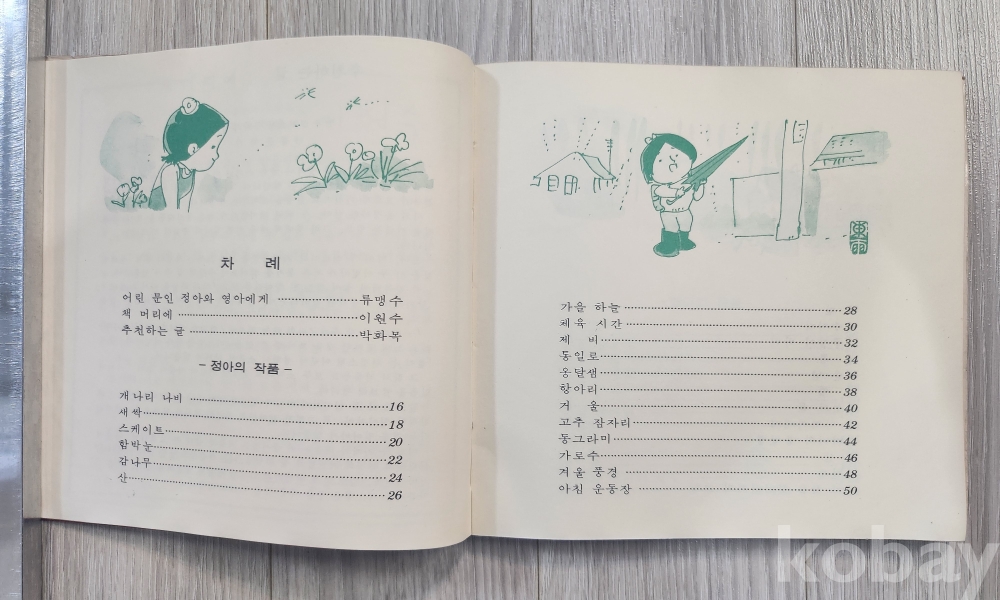 차 례
어린 문인 정아와 영아에게 류맹수
책 머리에 이원수
추천하는 글 박화목
– 정아의 작품 –
개나리 나비 16
새싹 18
스케이트 20
함박눈 22
감나무 24
산 26
가을 하늘 28
체육 시간 30
제 비 32
통일로 34
옹달샘 36
항아리 38
거 울 40
고추 잠자리 42
동그라미 44
가로수 46
겨울 풍경 48
아침 운동장 50
kobay